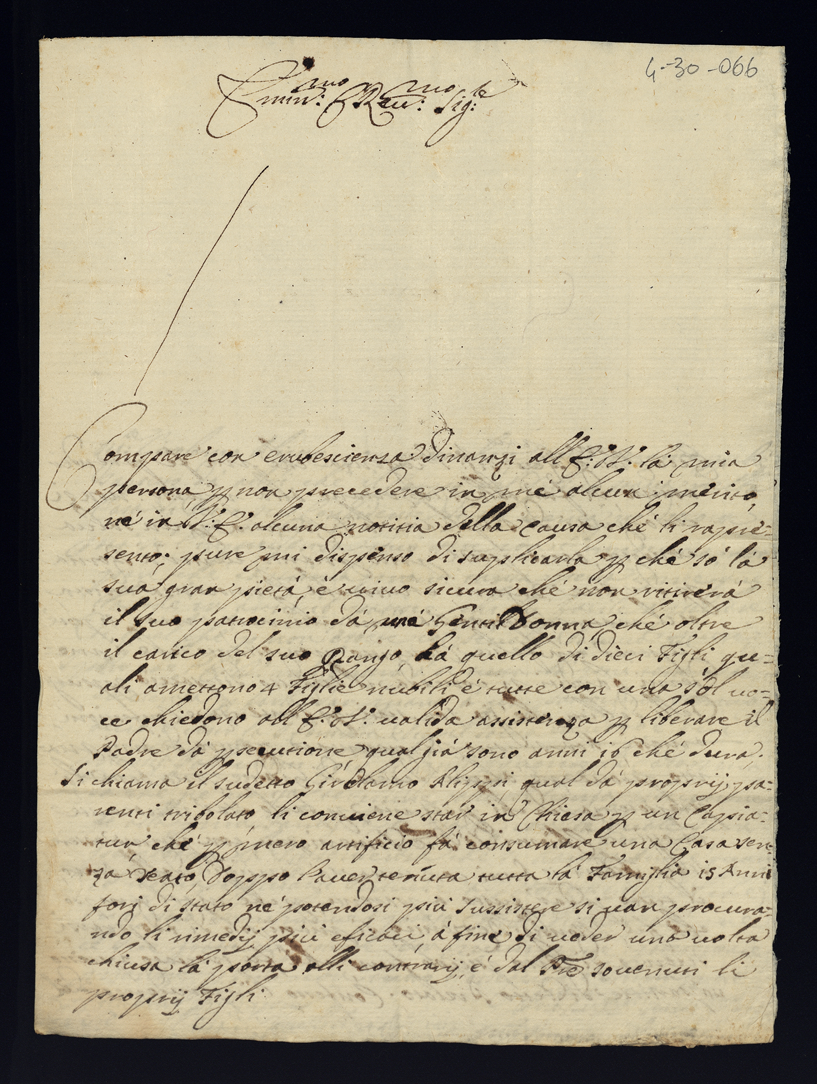 4-30-066
Emin:mo e Reu:mo Sig:re
Compare con erubescienza dinanzi all'E: V: la mia
persona p non precedere in mé alcun merito,
né in V: E: alcuna notitia della causa ché li rapre=
sento; pure mi dispenso di suplicarla p ché só la
sua gran pietá, e uiuo sicura ché non ritirerá
il suo patrocinio dá una Gentil Donna, ché oltre
il carico del suo Rango, há quello di dieci Figli qu=
ali amettono 4 Figlie nubili é tutte con una sol uo=
ce chiedono all'E: V: ualida assistenza p liberare il
Padre dá psecutione qual giá sono anni 16 ché dura.
Si chiama il sudetto Girolamo qual dá proprij pa=
renti tribolato li conuiene star in Chiesa p un Captia=
tur ché p mero artificio fá consumare una Casa sen=
zá reato, Doppo hauer tenuta tutta lá Famiglia 15 Anni
fori di stato né potendosi piú sussistere si uan procura=
ndo li rimedij piú eficaci, á fine di ueder una uolta
chiusa lá porta alli contrarij, é dal Pre souenuti li
proprij Figli